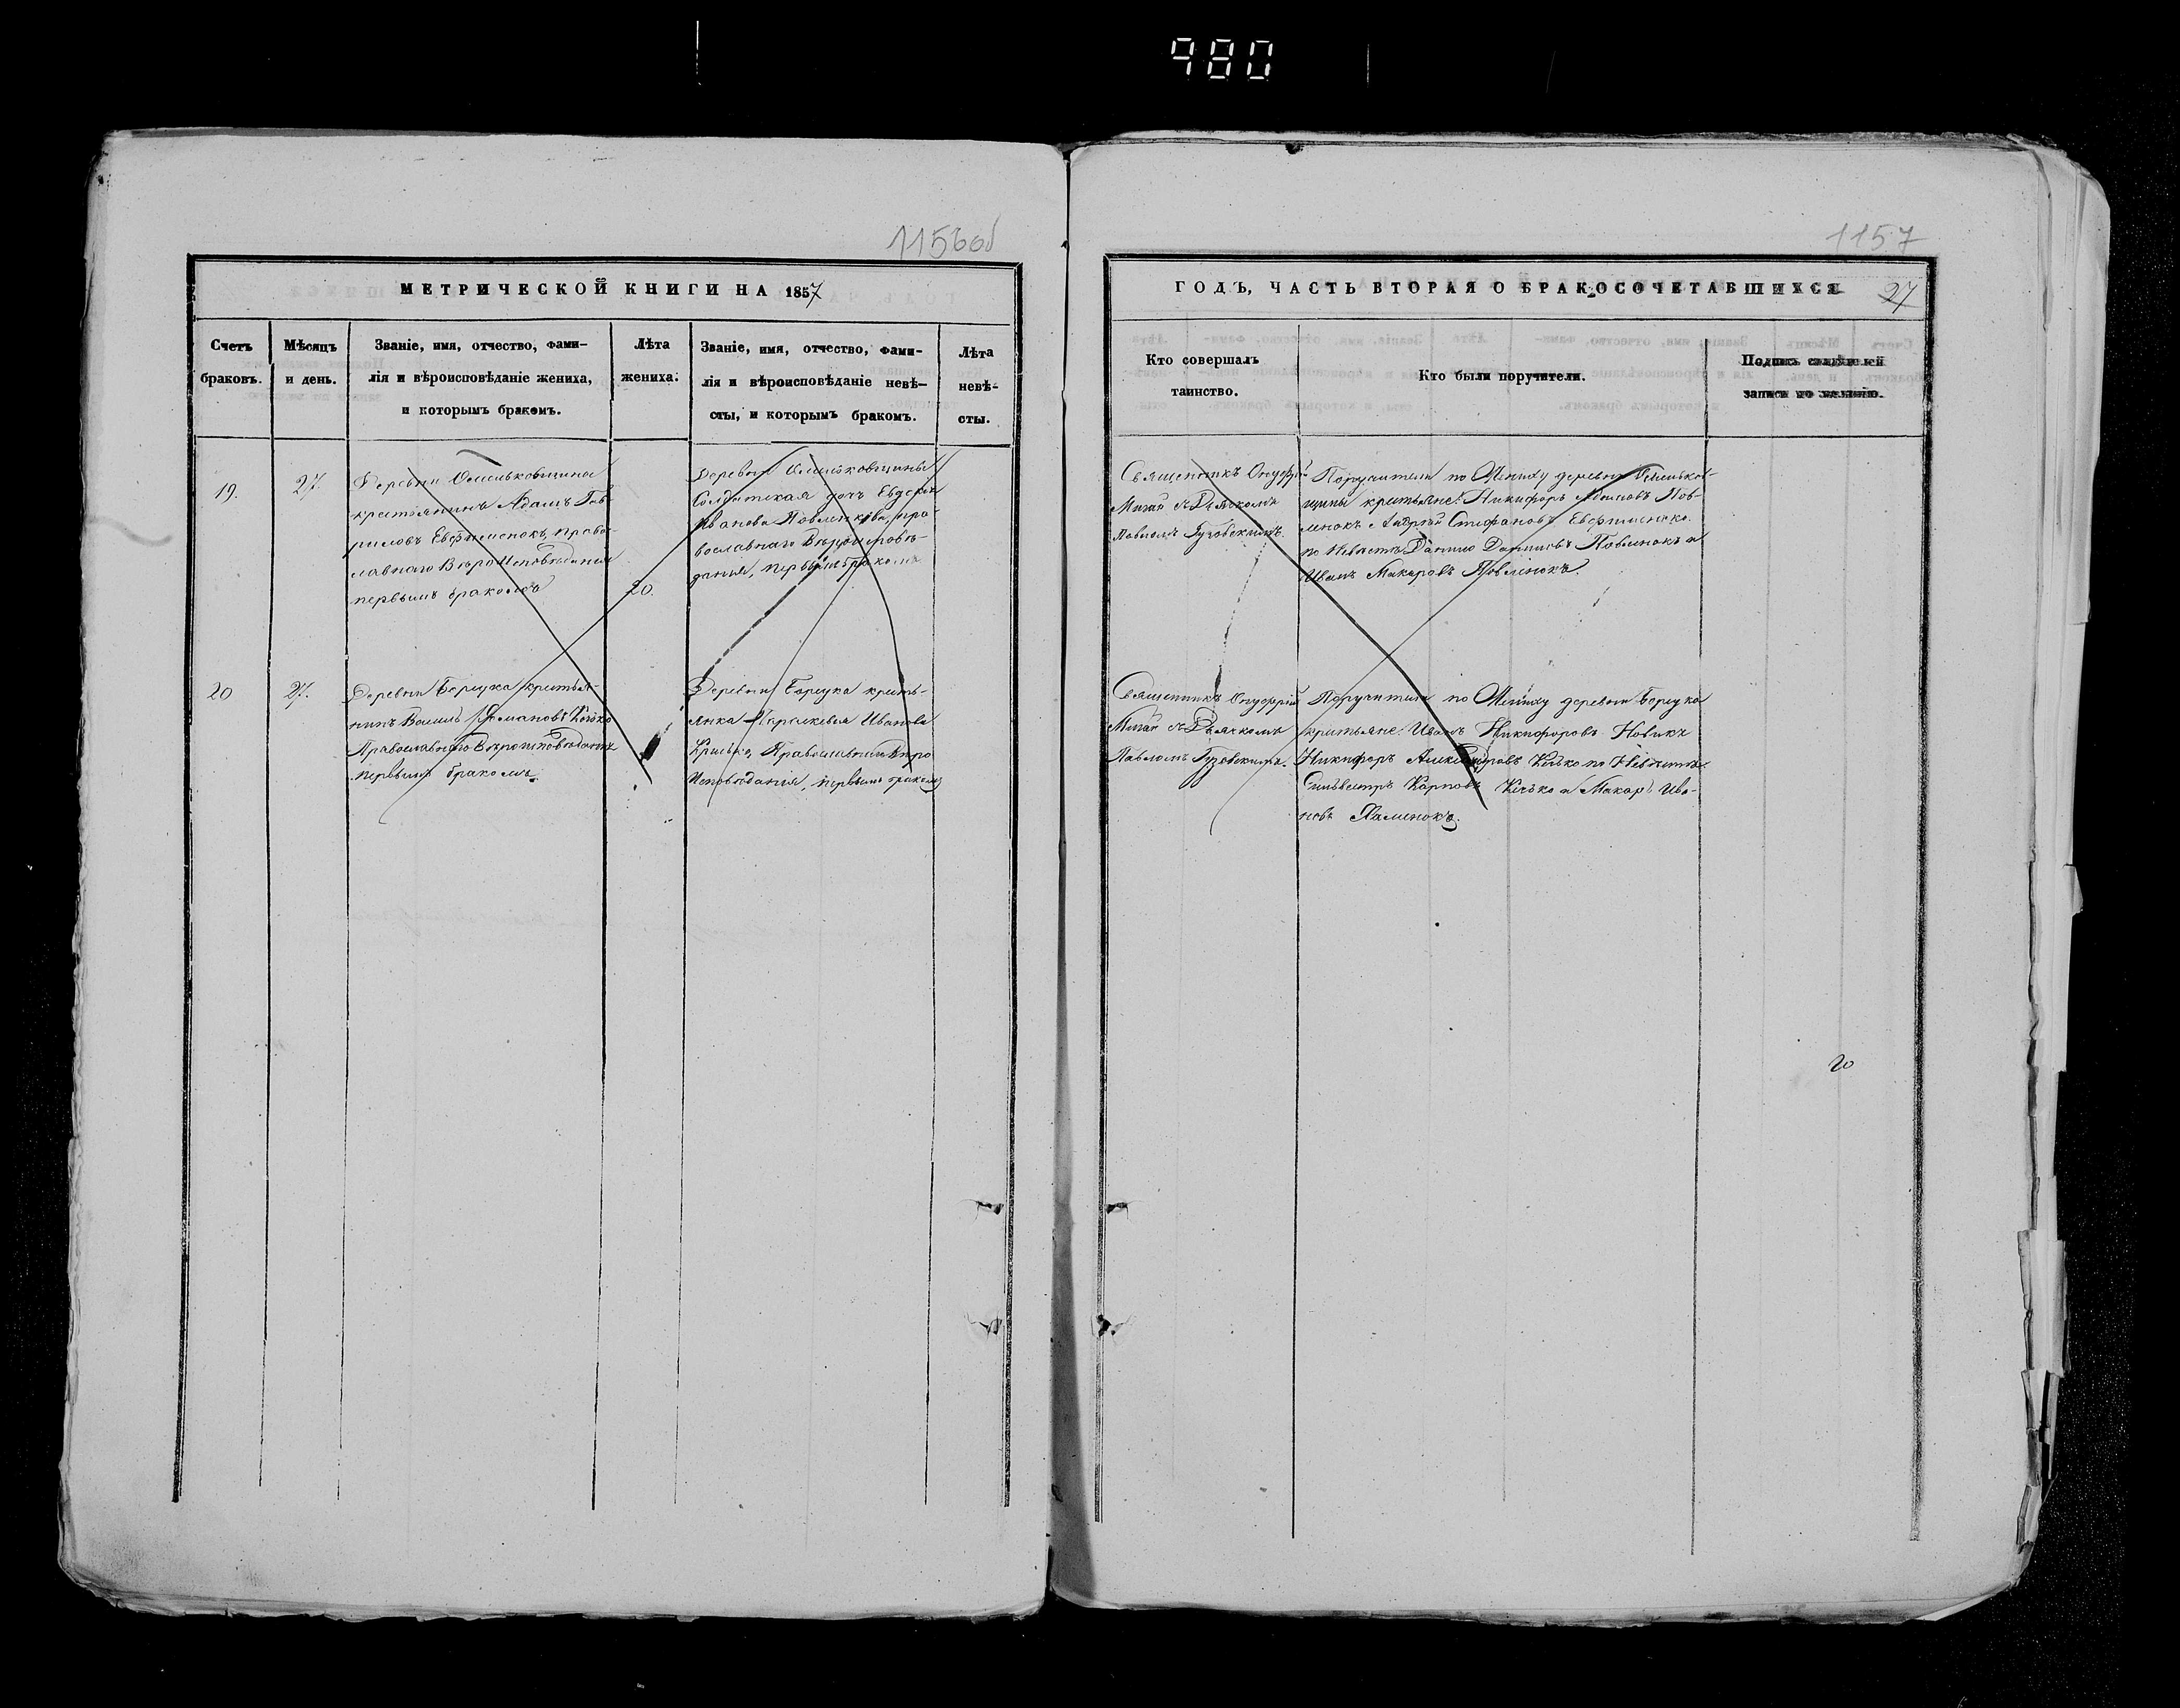 980
1156об
МЕТРИЧЕСКОЙ КНИГИ НА 1857
Счетъ браковъ.
Мѣсяцъ и день.
Званіе, имя, отчество, фами-
лія и вѣроисповѣданіе жениха,
и которымъ бракомъ.
Лѣта
жениха.
Званіе, имя, отчество, фами-
лія и вѣроисповѣданіе невѣ-
сты, и которымъ бракомъ.
Лѣта
невѣ-
сты.
19.
27.
Деревни
крестьянинъ Адамъ Гав-
риловъ Евфименокъ, право-
славнаго Вѣроисповѣданія
первымъ бракомъ
20.
Деревни
Солдатская дочь
Иванова Павленкова, пра-
вославнаго Вѣроисповѣ-
данія, первымъ бракомъ
20
27.
Деревни крестья-
нинъ
Православнаго Вѣроисповѣданія
первымъ бракомъ.
Деревни кресть-
янка Параскевья Иванова
Православнаго Вѣро
Исповѣданія, первымъ бракомъ
1157
ГОДЪ, ЧАСТЬ ВТОРАЯ О БРАКОСОЧЕТАВШИХСЯ
27
Кто совершалъ
таинство.
Кто были поручители.
Подпись свидѣтелей
записи по желанію.
Священникъ Онуфрій
съ Дьячкомъ
Павломъ
Поручители по Жениху деревни
крестьяне: Никифоръ Пав-
ленокъ Андрей Стефановъ
по Невѣстѣ Данило Данииловъ Павленокъ и
Иванъ Макаровъ Павленокъ.
Священникъ Онуфрій
съ Дьячкомъ
Павломъ
Поручители по Жениху деревни
крестьяне Иванъ Никифоровъ Новикъ
Никифоръ по Невѣстѣ
Сильвестръ Карповъ и Макаръ Ива-
новъ
20